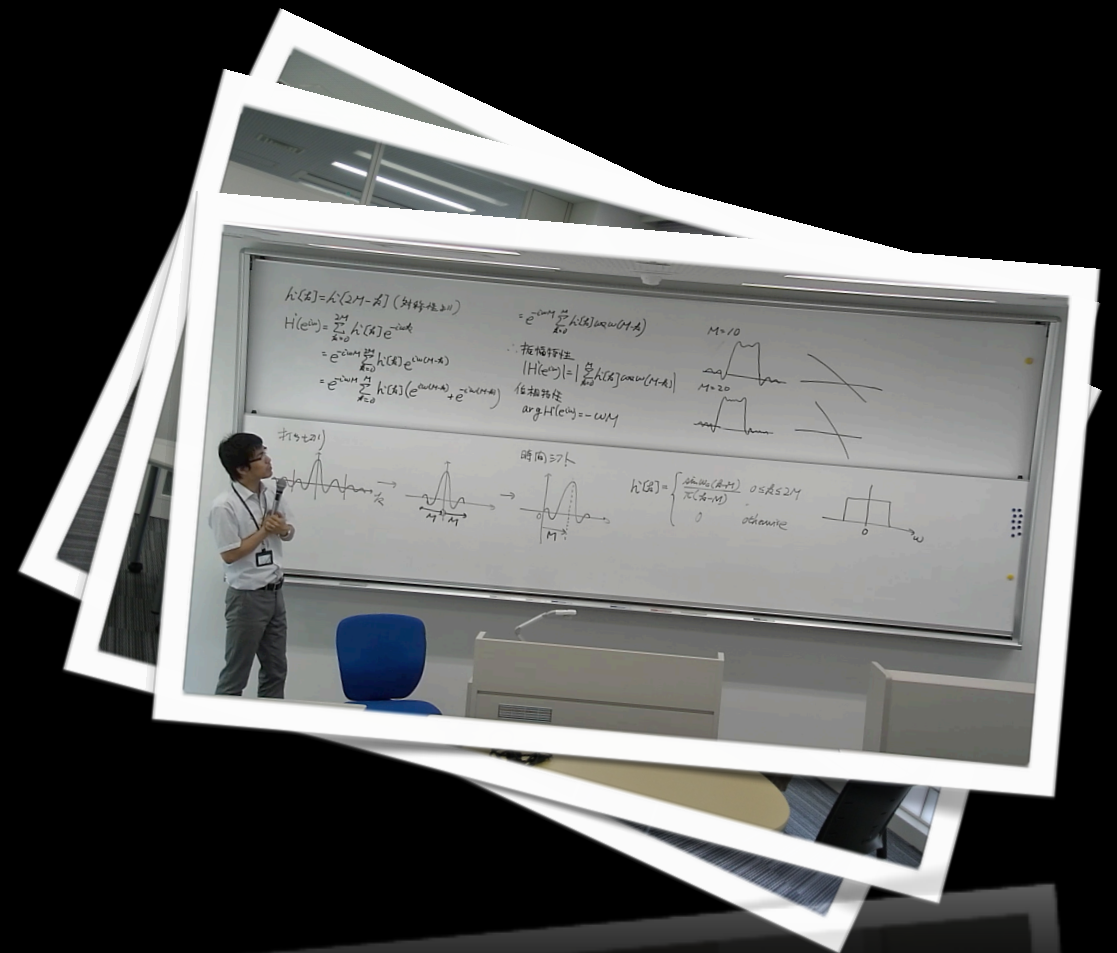 h'[k]=h'[2M-k] (対称性より)
H'(e^{iω})=∑_{k=0}^{2M} h'[k]e^{-iωk}
=e^{-iωM}∑_{k=0}^{2M}h'[k]e^{iω(M-k)}
=e^{-iωM}∑_{k=0}^{M}h'[k](e^{iω(M-k)}+e^{-iω(M-k)})
=e^{-iωM}∑_{k=0}^{M}h'[k]cosω(M-k)
∴振幅特性
|H'(e^{iω})|=|∑_{k=0}^{M}h'[k]cosω(M-k)|
位相特性
argH'(e^{iω})=-ωM
M=10
M=20
打ち切り
k
M M
時間シフト
M
h'[k]={ sinω₀(k-M)/π(k-M) 0≤k≤2M
0 otherwise
0 ω